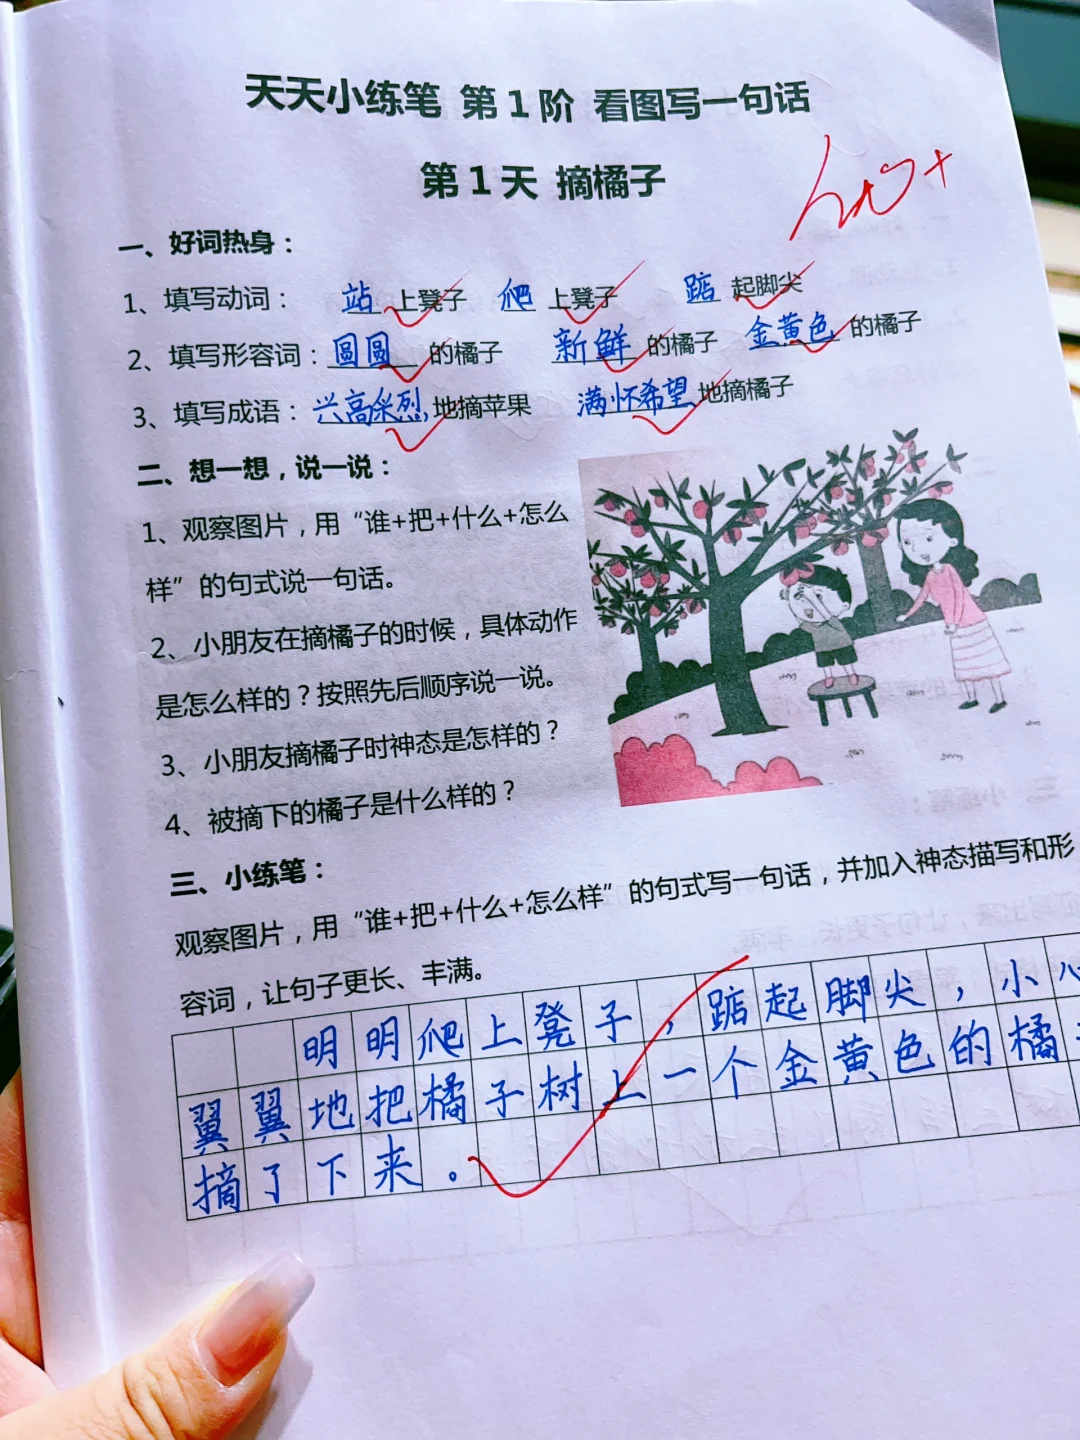 天天小练笔 第1阶 看图写一句话
第1天 摘橘子
一、好词热身：
1、填写动词： 站 上凳子 爬 上凳子 踮 起脚尖
2、填写形容词：圆圆 的橘子 新鲜 的橘子 金黄色 的橘子
3、填写成语：兴高采烈 地摘苹果 满怀希望 地摘橘子
二、想一想，说一说：
1、观察图片，用“谁+把+什么+怎么
样”的句式说一句话。
2、小朋友在摘橘子的时候，具体动作
是怎么样的？按照先后顺序说一说。
3、小朋友摘橘子时神态是怎样的？
4、被摘下的橘子是什么样的？
三、小练笔：
观察图片，用“谁+把+什么+怎么样”的句式写一句话，并加入神态描写和形
容词，让句子更长、丰满。
明明爬上凳子，踮起脚尖，小心
翼翼地把橘子树上一个金黄色的橘
摘了下来。